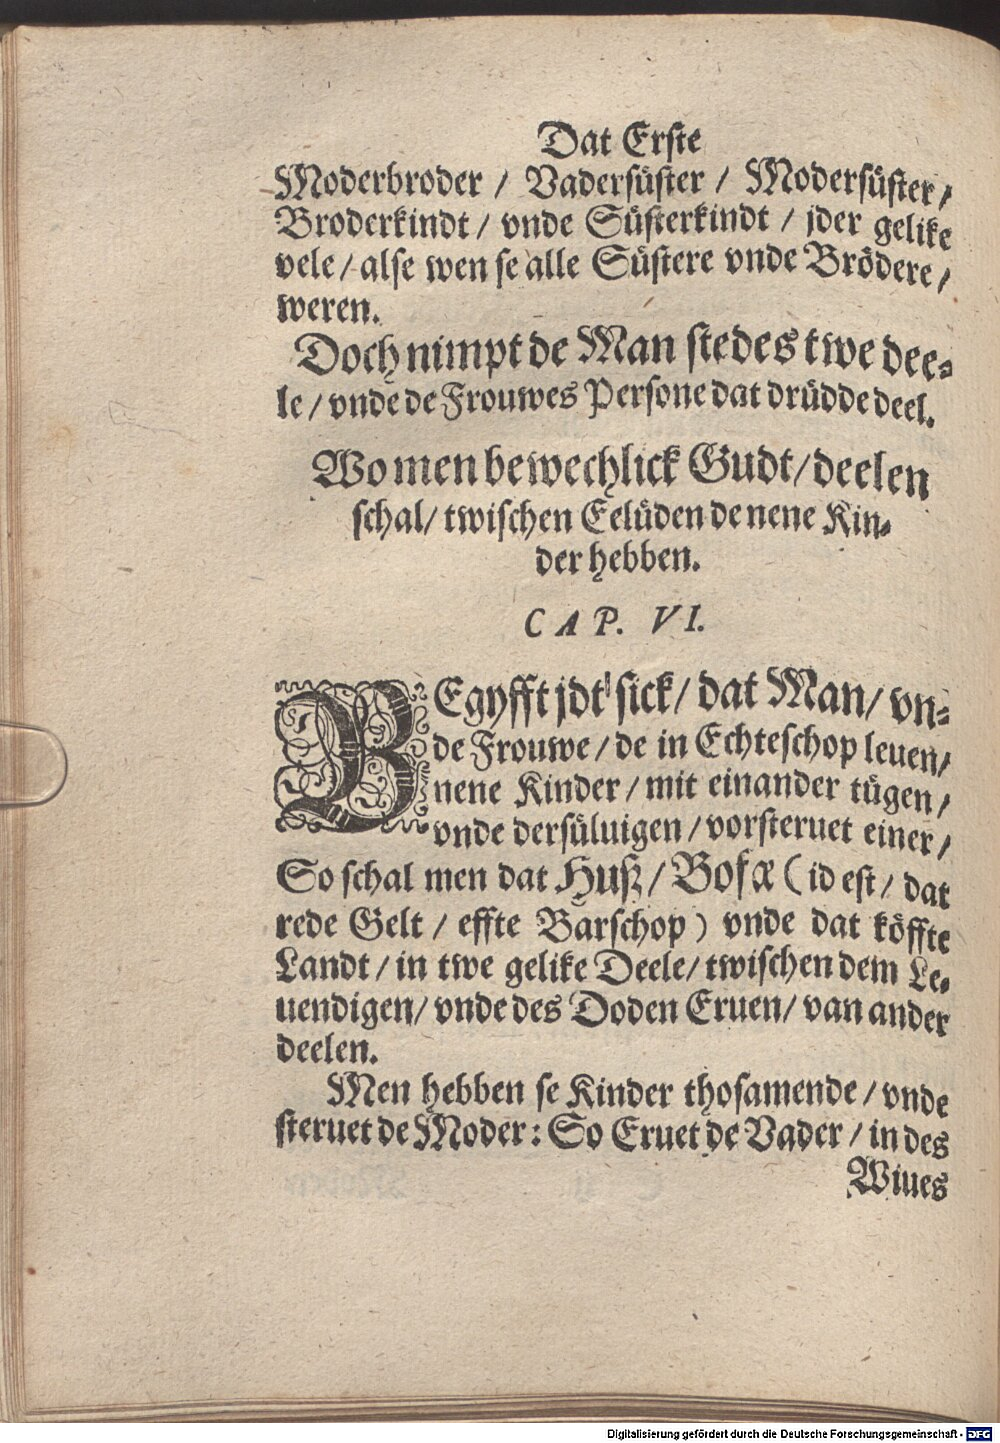 Dat Erste
Moderbroder / Vadersüster / Modersüster /
Broderkindt / vnde Süsterkindt / jder gelike
vele / alse wen se alle Süstere vnde Brödere /
weren.
Doch nimpt de Man stedes twe dee-
le / vnde de Frouwes Persone dat drüdde deel.
Wo men bewechlick Gudt / deelen
schal / twischen Eelüden de nene Kin-
der hebben.
CAP. VI.
BEgyfft jdt sick / dat Man / vn-
de Frouwe / de in Echteschop leuen /
nene Kinder / mit einander tügen /
vnde dersüluigen / vorsteruet einer /
So schal men dat Huß / Bofæ ( id est / dat
rede Gelt / effte Barschop ) vnde dat köffte
Landt / in twe gelike Deele / twischen dem Le-
uendigen / vnde des Doden Eruen / van ander
deelen.
Men hebben se Kinder thosamende / vnde
steruet de Moder : So Eruet de Vader / in des
Wiues
Digitalisierung gefördert durch die Deutsche Forschungsgemeinschaft - DFG